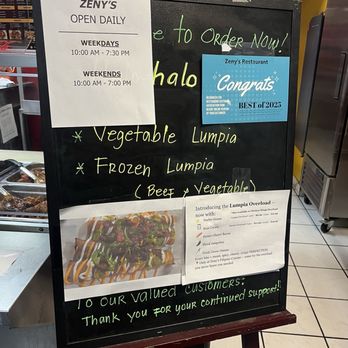 ZENY'S
OPEN DAILY
WEEKDAYS
10:00 AM - 7:30 PM
WEEKENDS
10:00 AM - 7:00 PM
e to Order Now!
halo
Zeny's Restaurant
Congrats
BEST of 2025
* Vegetable Lumpia
* Frozen Lumpia
(Beef & Vegetable)
Introducing the Lumpia Overload
now with:
To our valued customers:
Thank you for your continued support!